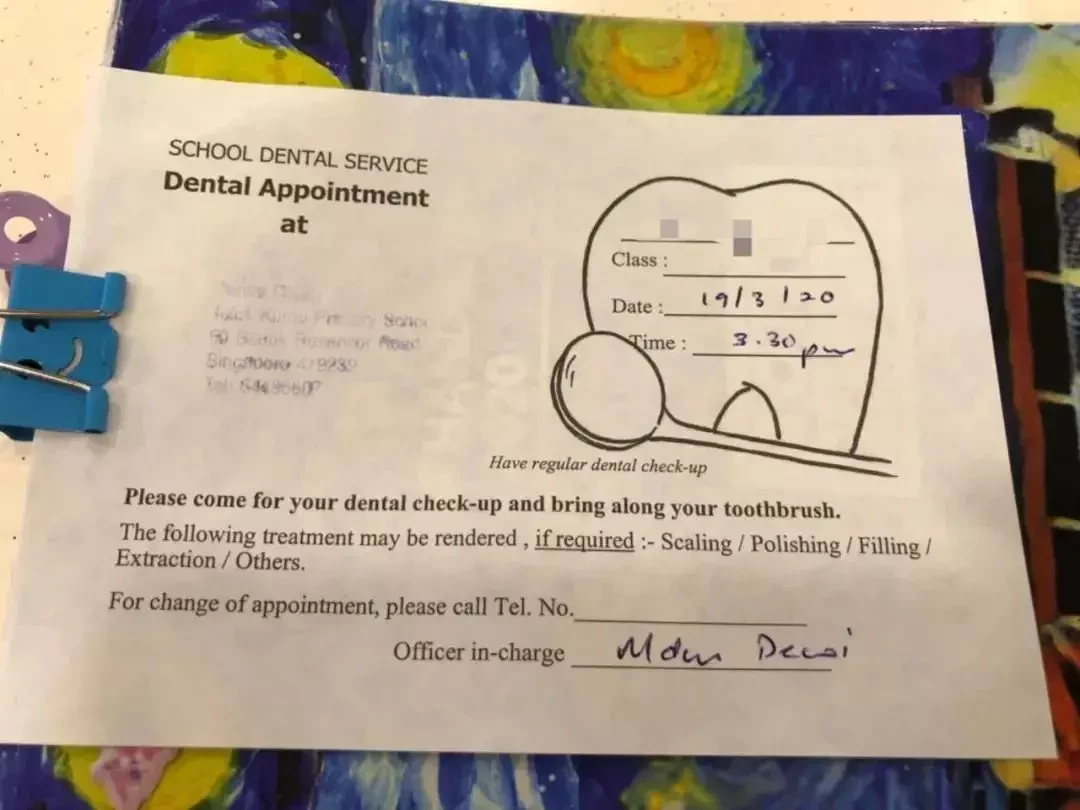 SCHOOL DENTAL SERVICE
Dental Appointment
at
Singapore
Tel:
Class :
Date : 19/3/20
Time : 3.30 pm
Have regular dental check-up
Please come for your dental check-up and bring along your toothbrush.
The following treatment may be rendered , if required :- Scaling / Polishing / Filling /
Extraction / Others.
For change of appointment, please call Tel. No.
Officer in-charge Mdm Dewi